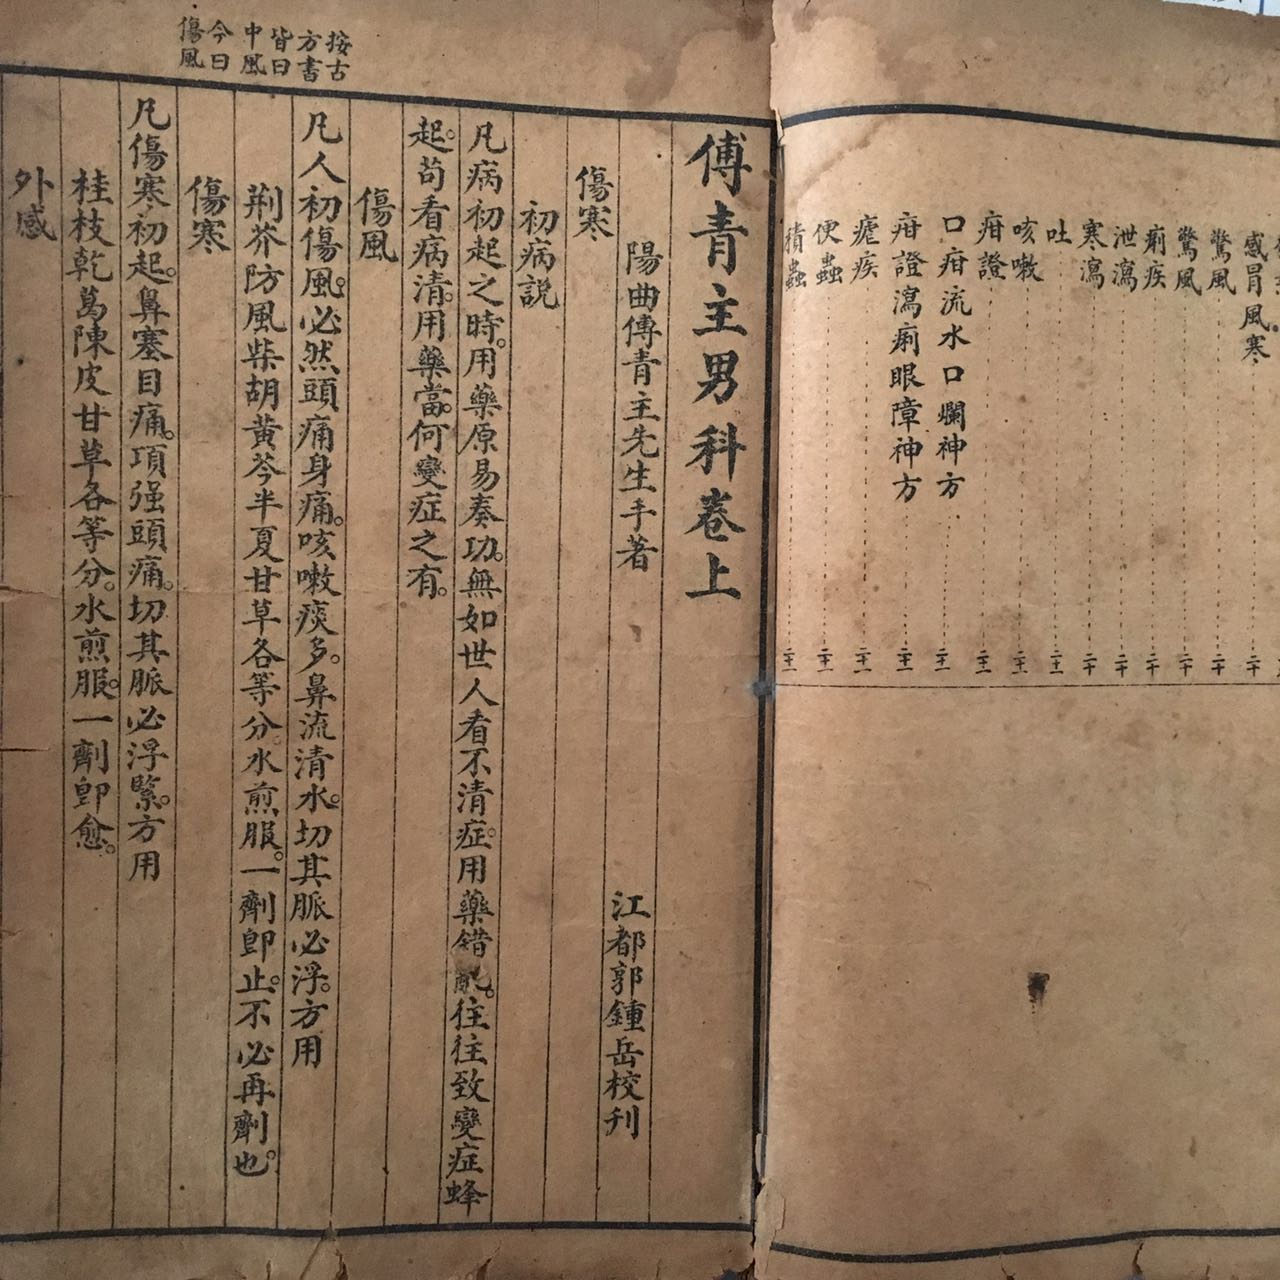 感冒風寒 二十
驚風 二十
驚風 二十
痢疾 二十
泄瀉 二十
寒瀉 二十
吐 二十一
咳嗽 二十一
疳證 二十一
口疳流水口爛神方 二十一
疳證瀉痢眼障神方 二十一
瘧疾 二十一
便蟲 二十一
積蟲 二十一
按古
方書
皆曰
中風
今曰
傷風
傅青主男科卷上
陽曲傅青主先生手著 江都郭鍾岳校刋
傷寒
初病説
凡病初起之時。用藥原易奏功。無如世人看不清症。用藥錯亂。往往致變症蜂
起。苟看病清。用藥當。何變症之有。
傷風
凡人初傷風。必然頭痛身痛。咳嗽痰多。鼻流清水。切其脈必浮。方用
荆芥防風柴胡黄芩半夏甘草各等分。水煎服。一劑卽止。不必再劑也。
傷寒
凡傷寒初起。鼻塞目痛。項强頭痛。切其脈必浮緊。方用
桂枝乾葛陳皮甘草各等分。水煎服。一劑卽愈。
外感